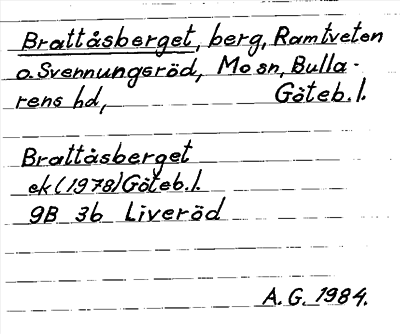 Brattåsberget, berg, Ramtveten
o. Svennungsröd, Mo sn, Bulla-
rens hd, Göteb. l.
Brattåsberget
ek (1978) Göteb. l.
9B 3b Liveröd
A. G. 1984.